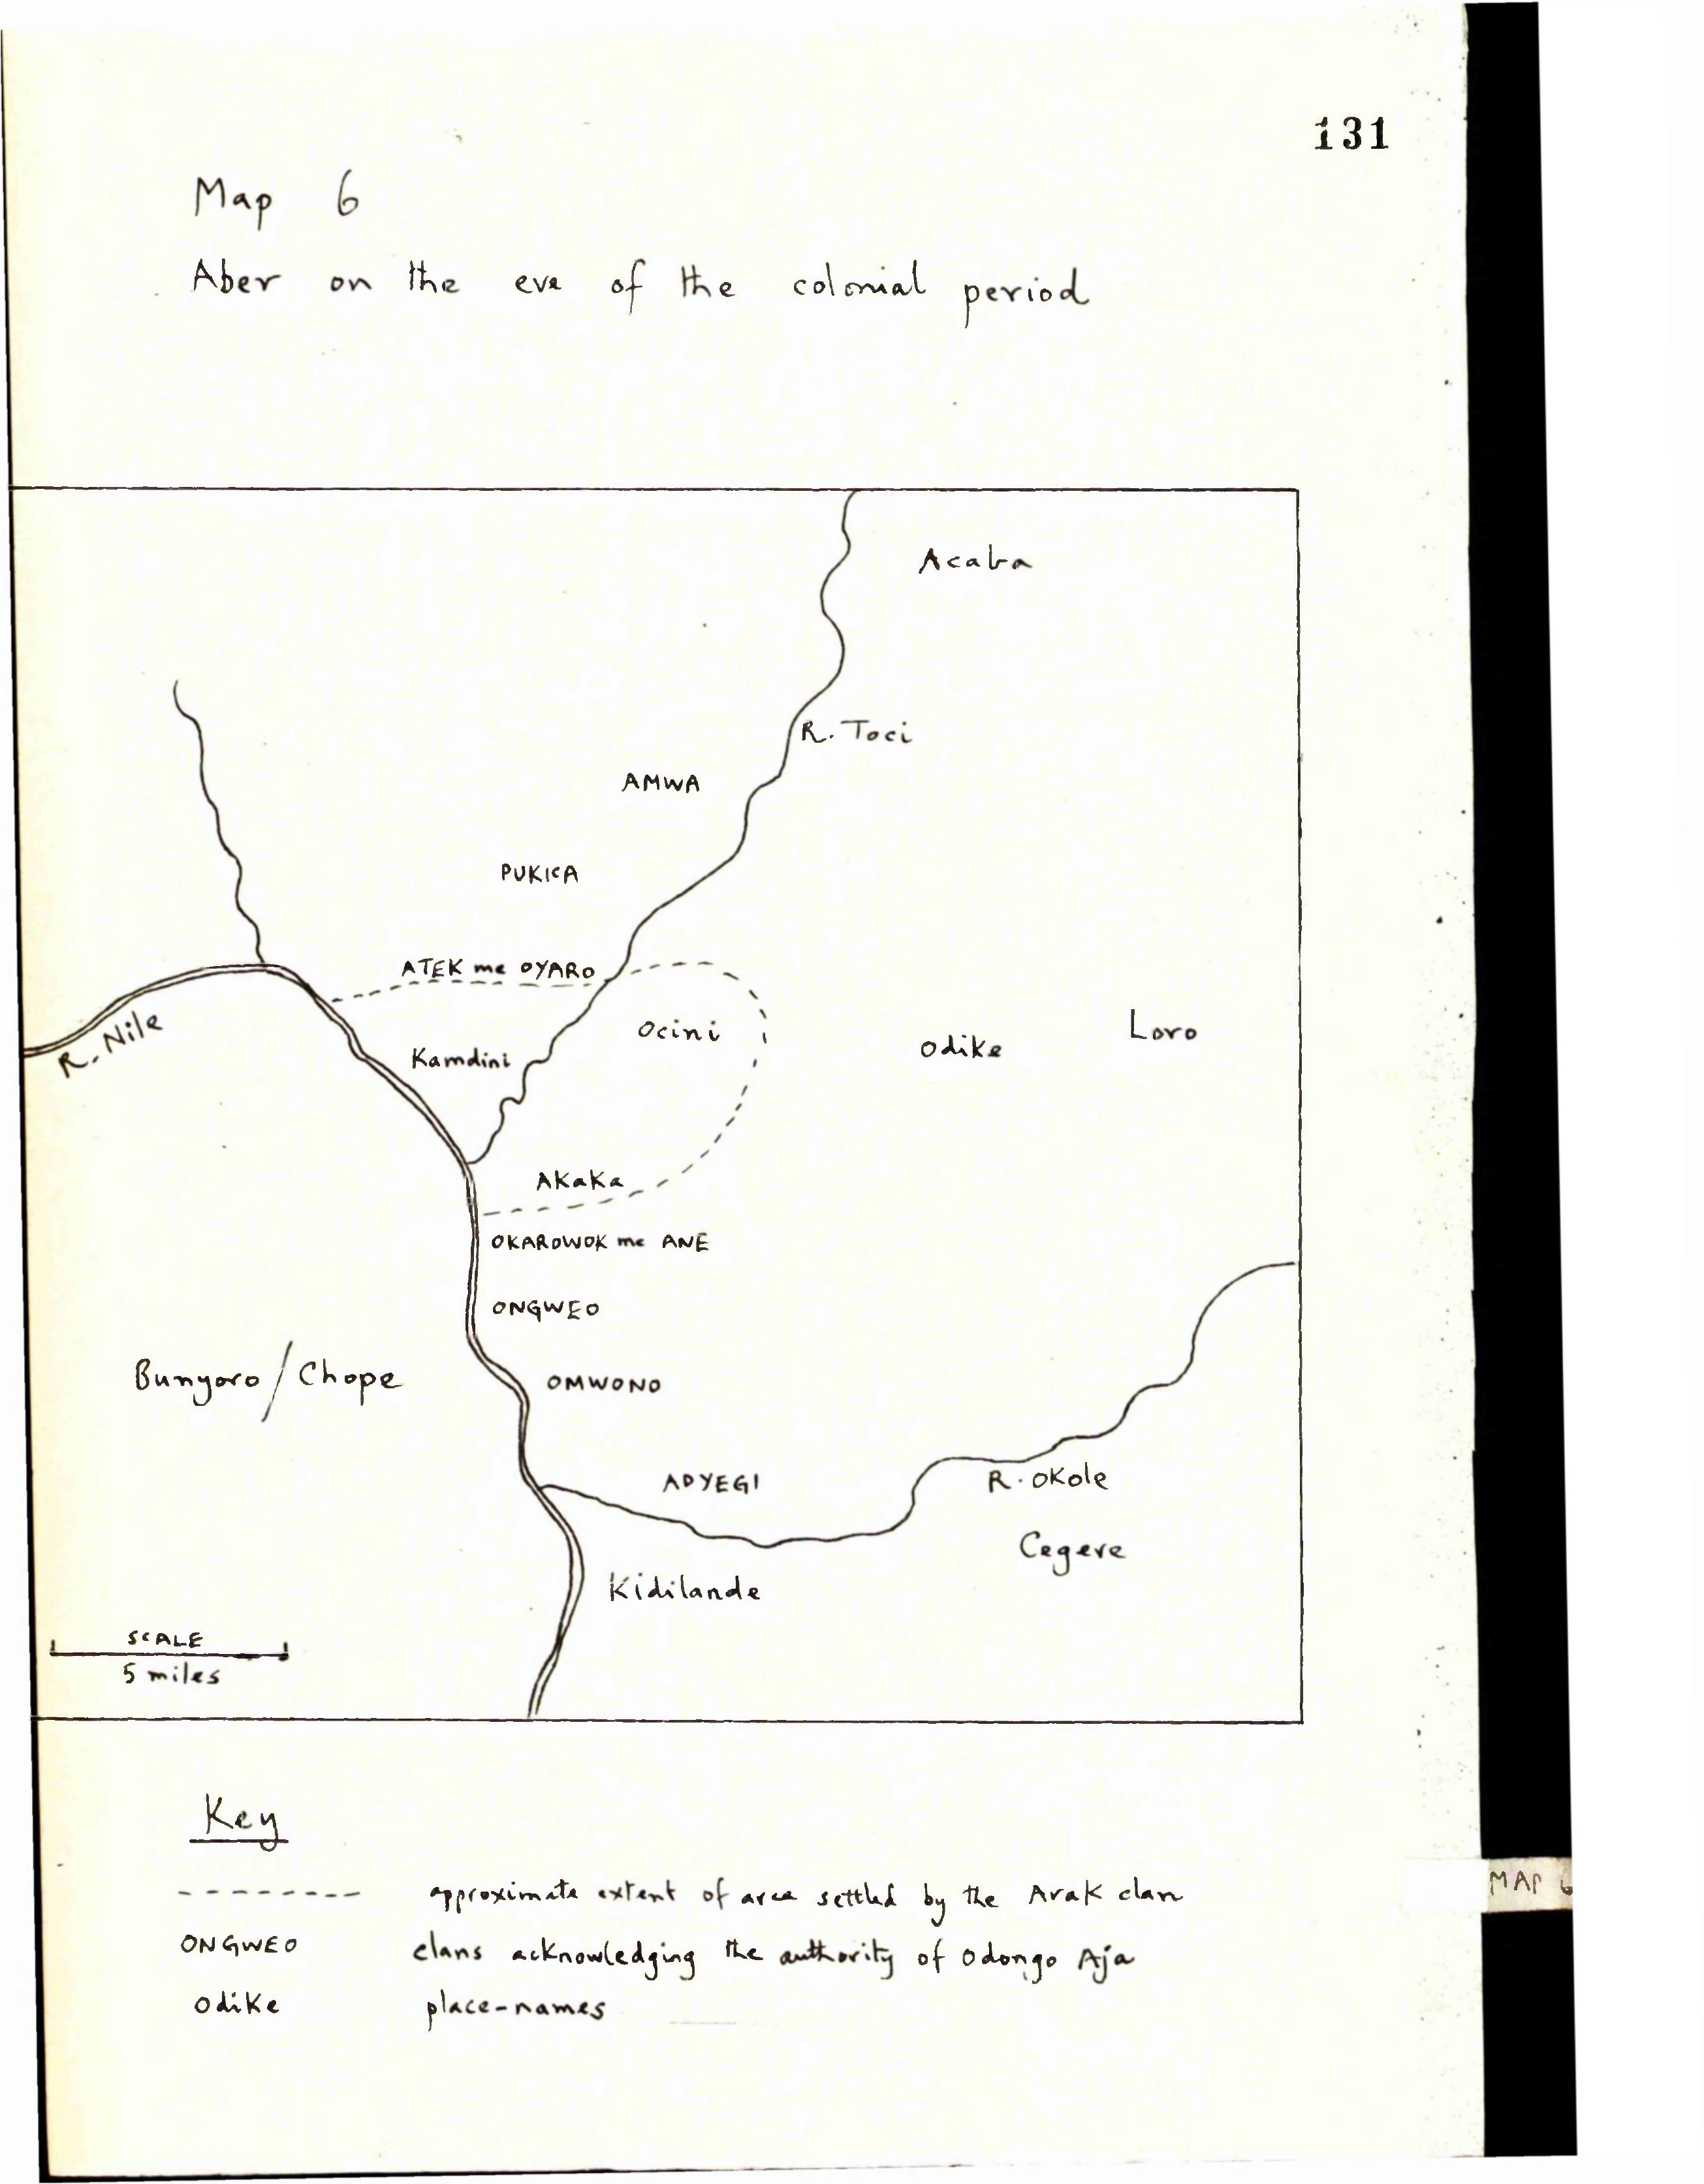 131
Map 6
Aber on the eve of the colonial period
Acaba
R. Toci
AMWA
PUKICA
ATEK me OYARO
R. Nile
Kamdini
Ocini
Odike
Loro
Akaka
OKAROWOK me ANE
ONGWEO
Bunyoro / Chope
OMWONO
ADYEGI
R. Okole
Cegere
Kidilande
SCALE
5 miles
Key
approximate extent of area settled by the Arak clan
ONGWEO clans acknowledging the authority of Odongo Aja
Odike place-names
MAP 6